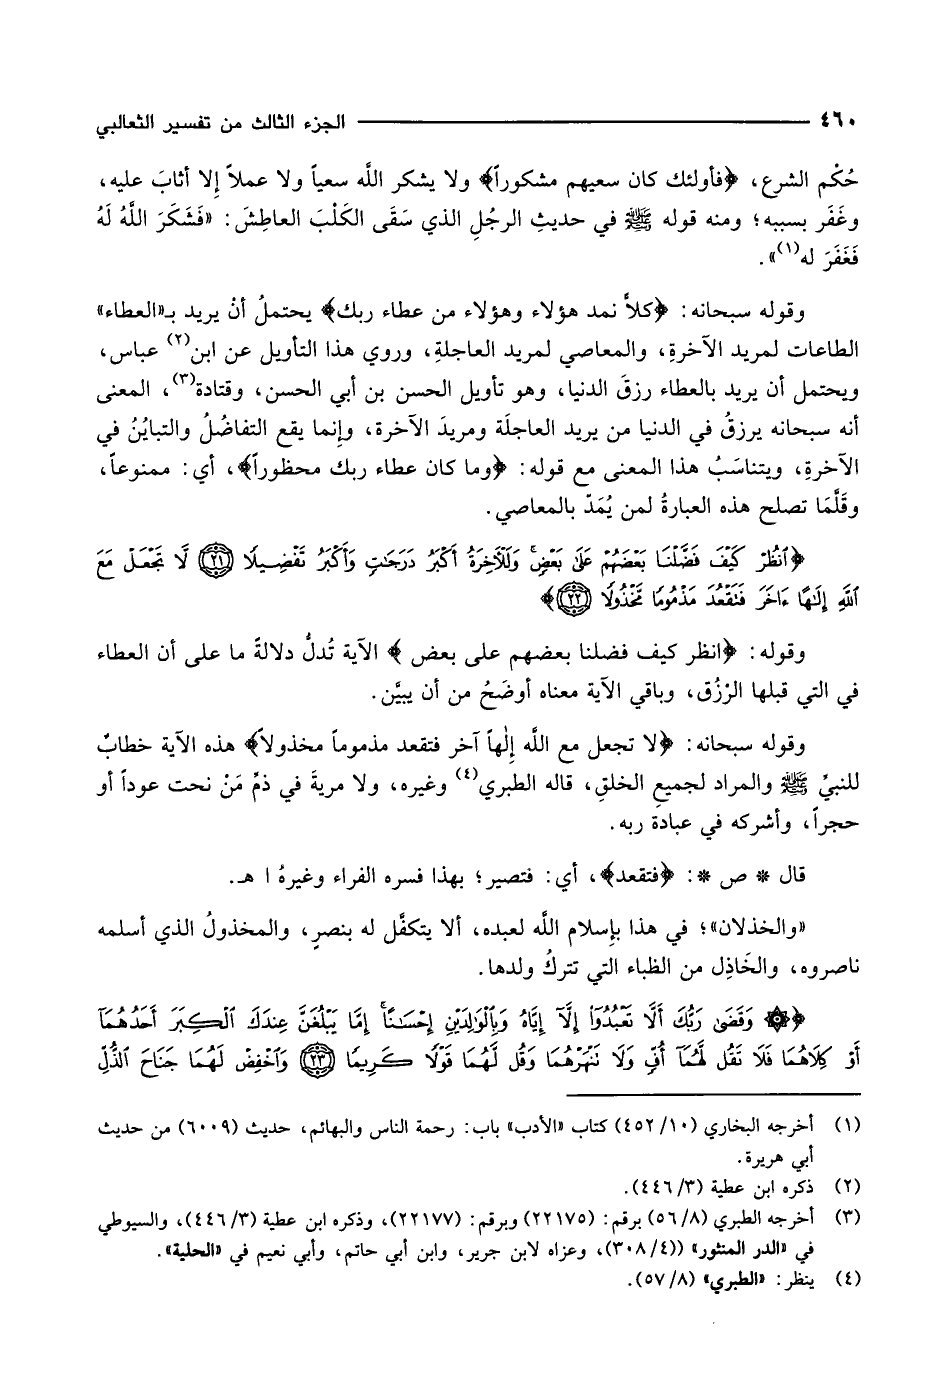 ٤٦٠ الجزء الثالث من تفسير الثعالبي
حُكْم الشرع، ﴿فأولئك كان سعيهم مشكوراً﴾ ولا يشكر اللَّه سعياً ولا عملاً إِلا أثابَ عليه،
وغَفَر بسببه؛ ومنه قوله ﷺ في حديثِ الرجُلِ الذي سَقَى الكَلْبَ العاطِشَ: «فَشَكَرَ اللَّهُ لَهُ
فَغَفَرَ له(١)».
وقوله سبحانه: ﴿كلاًّ نمد هؤلاء وهؤلاء من عطاء ربك﴾ يحتملُ أنْ يريد بـ«العطاء»
الطاعات لمريد الآخرةِ، والمعاصي لمريد العاجلةِ، وروي هذا التأويل عن ابن(٢) عباس،
ويحتمل أن يريد بالعطاء رزقَ الدنيا، وهو تأويل الحسن بن أبي الحسن، وقتادة(٣)، المعنى
أنه سبحانه يرزقُ في الدنيا من يريد العاجلَة ومريدَ الآخرة، وإِنما يقع التفاضُلُ والتبايُنُ في
الآخرةِ، ويتناسَبُ هذا المعنى مع قوله: ﴿وما كان عطاء ربك محظوراً﴾، أي: ممنوعاً،
وقَلَّمَا تصلح هذه العبارةُ لمن يُمَدّ بالمعاصي.
﴿ٱنظُرْ كَيْفَ فَضَّلْنَا بَعْضَهُمْ عَلَىٰ بَعْضٍ ۚ وَلَلْآخِرَةُ أَكْبَرُ دَرَجَٰتٍ وَأَكْبَرُ تَفْضِيلًا ﴿٢١﴾ لَّا تَجْعَلْ مَعَ
ٱللَّهِ إِلَٰهًا ءَاخَرَ فَتَقْعُدَ مَذْمُومًا مَّخْذُولًا ﴿٢٢﴾﴾
وقوله: ﴿انظر كيف فضلنا بعضهم على بعض﴾ الآية تُدلُّ دلالةً ما على أن العطاء
في التي قبلها الرْزُق، وباقي الآية معناه أوضَحُ من أن يبيَّن.
وقوله سبحانه: ﴿لا تجعل مع اللَّه إِلٰهاً آخر فتقعد مذموماً مخذولاً﴾ هذه الآية خطابٌ
للنبيِّ ﷺ والمراد لجميعِ الخلقِ، قاله الطبري(٤) وغيره، ولا مريةَ في ذمِّ مَنْ نحت عوداً أو
حجراً، وأشركه في عبادة ربه.
قال * ص *: ﴿فتقعد﴾، أي: فتصير؛ بهذا فسره الفراء وغيرهُ ا هـ.
«والخذلان»؛ في هذا بإِسلام اللَّه لعبده، ألا يتكفَّل له بنصرٍ، والمخذولُ الذي أسلمه
ناصروه، والخَاذِل من الظباء التي تتركُ ولدها.
﴿۞ وَقَضَىٰ رَبُّكَ أَلَّا تَعْبُدُوٓا۟ إِلَّآ إِيَّاهُ وَبِٱلْوَٰلِدَيْنِ إِحْسَٰنًا ۚ إِمَّا يَبْلُغَنَّ عِندَكَ ٱلْكِبَرَ أَحَدُهُمَآ
أَوْ كِلَاهُمَا فَلَا تَقُل لَّهُمَآ أُفٍّ وَلَا نَنْهَرْهُمَا وَقُل لَّهُمَا قَوْلًا كَرِيمًا ﴿٢٣﴾ وَٱخْفِضْ لَهُمَا جَنَاحَ ٱلذُّلِّ
(١) أخرجه البخاري (١٠/ ٤٥٢) كتاب «الأدب» باب: رحمة الناس والبهائم، حديث (٦٠٠٩) من حديث
أبي هريرة.
(٢) ذكره ابن عطية (٣/ ٤٤٦).
(٣) أخرجه الطبري (٨/ ٥٦) برقم: (٢٢١٧٥) وبرقم: (٢٢١٧٧)، وذكره ابن عطية (٣/ ٤٤٦)، والسيوطي
في «الدر المنثور» ((٤/ ٣٠٨)، وعزاه لابن جرير، وابن أبي حاتم، وأبي نعيم في «الحلية».
(٤) ينظر: «الطبري» (٨/ ٥٧).